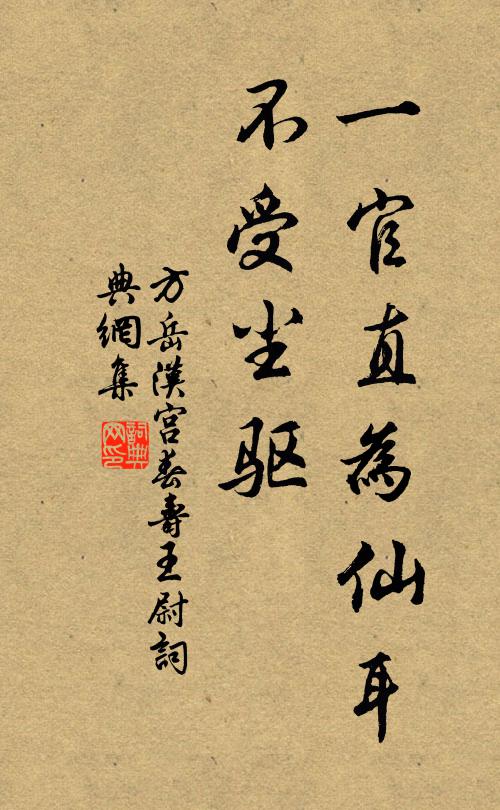 一官直為仙耳
不受尘驱
方岳漢宮春壽王尉詞
典網集
詞典网印